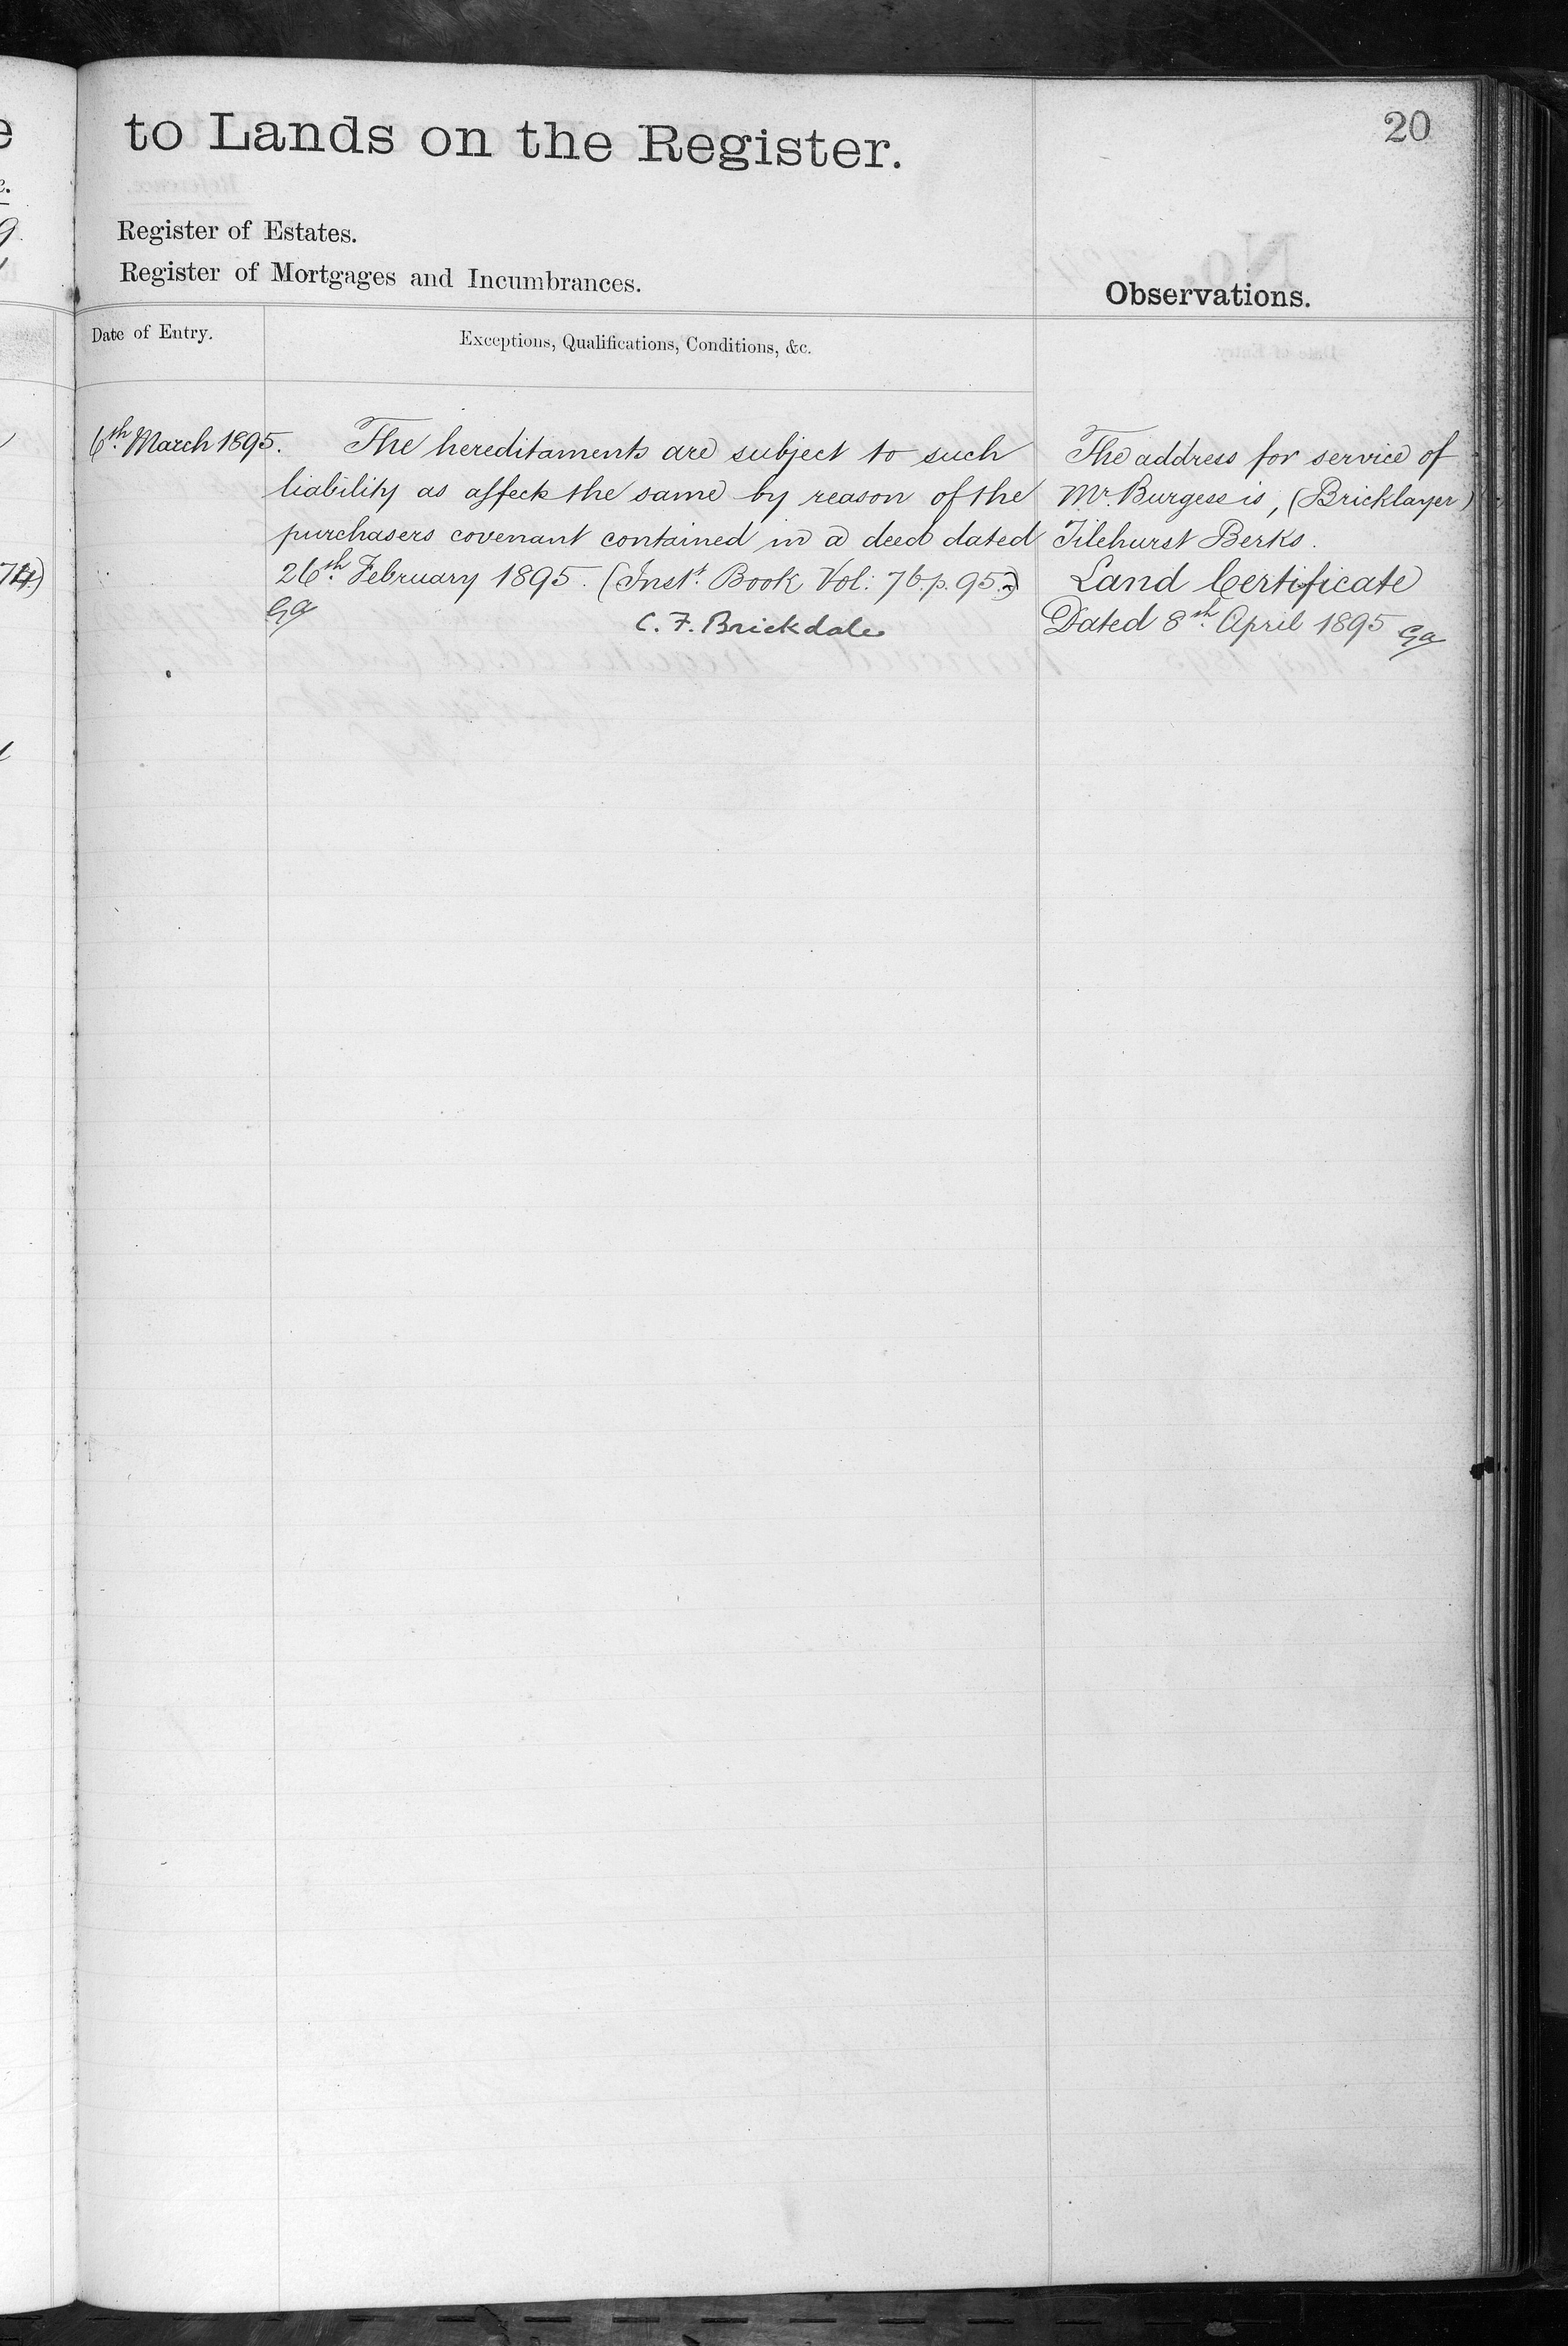 to Lands on the Register.
20
Register of Estates.
Register of Mortgages and Incumbrances.
Observations.
Date of Entry.
Exceptions, Qualifications, Conditions, &c.
6th March 1895.
The hereditaments are subject to such
liability as affects the same by reason of the
purchasers covenant contained in a deed dated
26th February 1895. (Inst. Book Vol: 76. p. 95.)
C. F. Brickdale
The address for service of
Mr. Burgess is, (Bricklayer)
Tilehurst Berks.
Land Certificate
Dated 8th April 1895